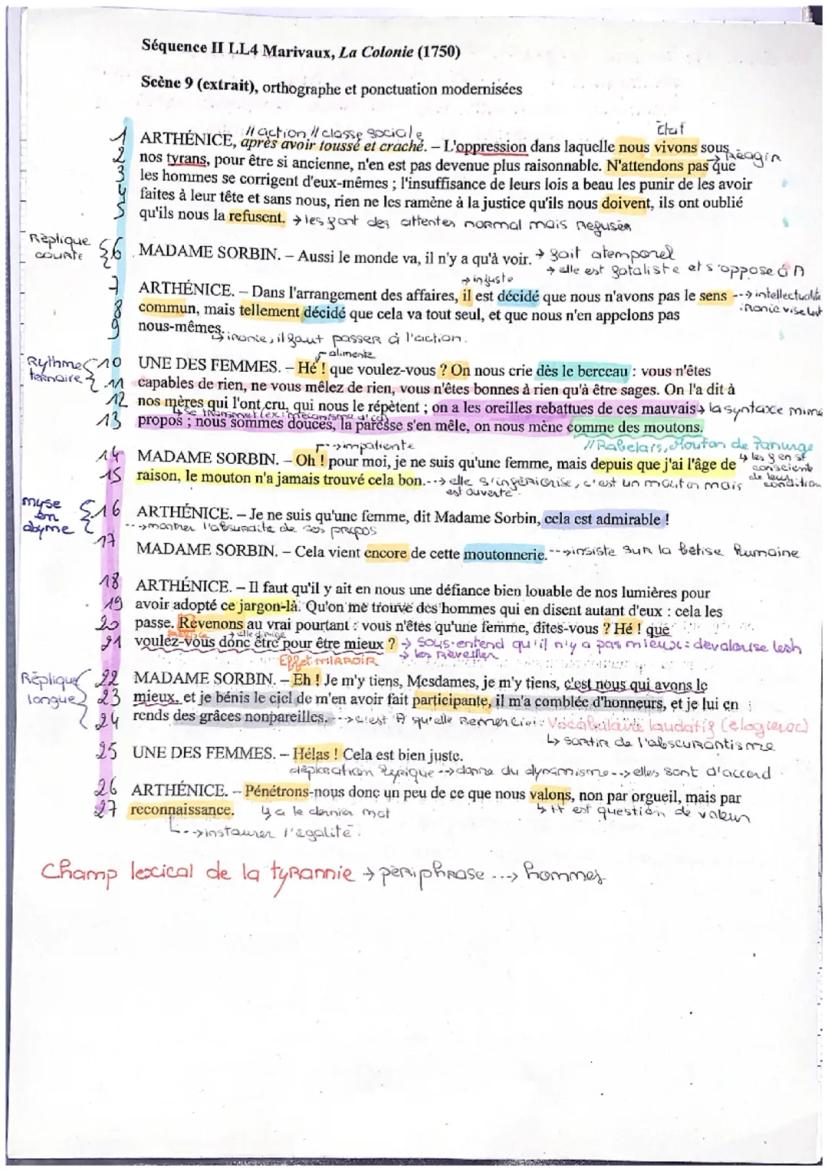 Séquence II LL4 Marivaux, La Colonie (1750)
Scène 9 (extrait), orthographe et ponctuation modernisées
// action // classe sociale
État
1 ARTHÉNICE, après avoir toussé et craché. – L'oppression dans laquelle nous vivons sous
2 nos tyrans, pour être si ancienne, n'en est pas devenue plus raisonnable. N'attendons pas que
→ Réagir
3 les hommes se corrigent d'eux-mêmes ; l'insuffisance de leurs lois a beau les punir de les avoir
faites à leur tête et sans nous, rien ne les ramène à la justice qu'ils nous doivent, ils ont oublié
5 qu'ils nous la refusent. → les font des attentes normal mais refusés
Réplique courte
6 MADAME SORBIN. – Aussi le monde va, il n'y a qu'à voir. → fait atemporel
→ elle est fataliste et s'oppose à A
→ injuste
7 ARTHÉNICE. – Dans l'arrangement des affaires, il est décidé que nous n'avons pas le sens --→ intellectualité
8 commun, mais tellement décidé que cela va tout seul, et que nous n'en appelons pas
9 nous-mêmes. → ironie, il faut passer à l'action.
Rythme ternaire
alimente
10 UNE DES FEMMES. – Hé ! que voulez-vous ? On nous crie dès le berceau : vous n'êtes
11 capables de rien, ne vous mêlez de rien, vous n'êtes bonnes à rien qu'à être sages. On l'a dit à
12 nos mères qui l'ont cru, qui nous le répètent ; on a les oreilles rebattues de ces mauvais → la syntaxe mime
13 propos ; nous sommes douces, la paresse s'en mêle, on nous mène comme des moutons.
// Rabelais, Mouton de Panurge
→ impatiente
14 MADAME SORBIN. – Oh ! pour moi, je ne suis qu'une femme, mais depuis que j'ai l'âge de
15 raison, le mouton n'a jamais trouvé cela bon. --→ elle s'infériorise, c'est un mouton mais
est ouverte
myse en abyme
16 ARTHÉNICE. – Je ne suis qu'une femme, dit Madame Sorbin, cela est admirable !
--→ montrer l'absurdité de ses propos
17 MADAME SORBIN. – Cela vient encore de cette moutonnerie. --→ insiste sur la bêtise humaine
18 ARTHÉNICE. – Il faut qu'il y ait en nous une défiance bien louable de nos lumières pour
19 avoir adopté ce jargon-là. Qu'on me trouve des hommes qui en disent autant d'eux : cela les
20 passe. Revenons au vrai pourtant : vous n'êtes qu'une femme, dites-vous ? Hé ! que
21 voulez-vous donc être pour être mieux ? → sous-entend qu'il n'y a pas mieux : dévalorise les h
→ les réveiller
Effet MIROIR
Réplique longue
22 MADAME SORBIN. – Eh ! Je m'y tiens, Mesdames, je m'y tiens, c'est nous qui avons le
23 mieux, et je bénis le ciel de m'en avoir fait participante, il m'a comblée d'honneurs, et je lui en
24 rends des grâces nonpareilles. --→ c'est A qu'elle remercie : Vocabulaire laudatif (élogieux)
↳ sortir de l'obscurantisme
25 UNE DES FEMMES. – Hélas ! Cela est bien juste.
déploration lyrique --→ donne du dynamisme --→ elles sont d'accord
26 ARTHÉNICE. – Pénétrons-nous donc un peu de ce que nous valons, non par orgueil, mais par
27 reconnaissance. ↳ a le dernier mot
↳ il est question de valeur
--→ instaurer l'égalité.
Champ lexical de la tyrannie → périphrase ---→ hommes